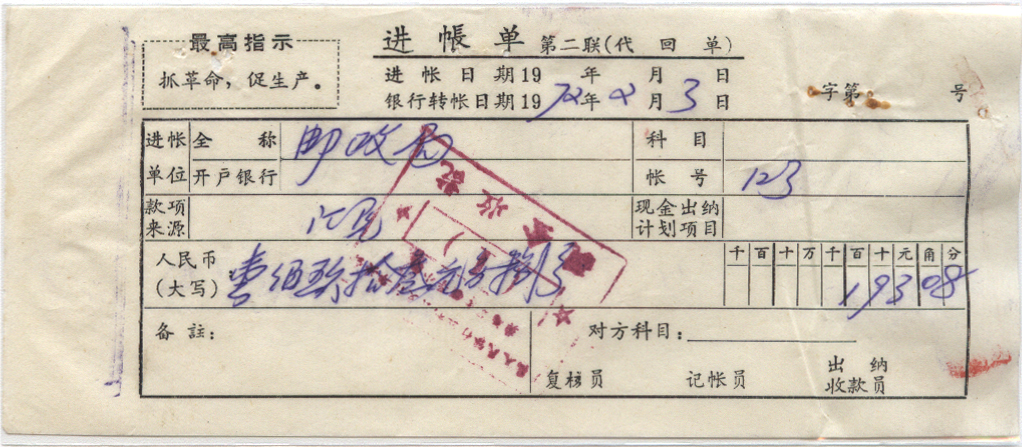 最高指示
抓革命，促生产。
进帐单 第二联(代回单)
进帐日期19 年 月 日
银行转帐日期1972年2月3日
字第 号
进帐单位 全称 邮政局 科目
开户银行 帐号 123
款项来源 汇兑 现金出纳计划项目
人民币(大写) 壹佰玖拾叁元零捌分 千百十万千百十元角分 19308
备註： 对方科目：
复核员 记帐员 出纳收款员